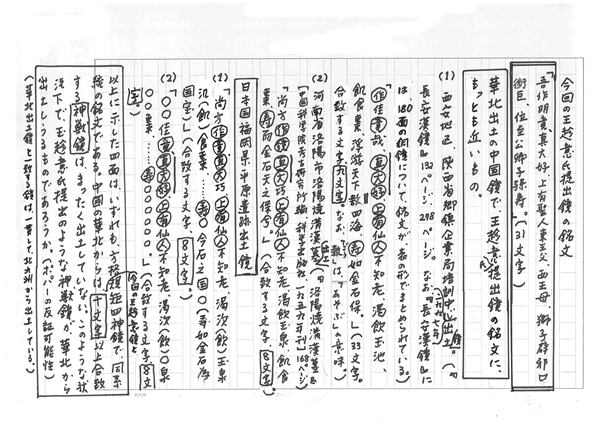 今回の王趁意氏提出鏡の銘文
吾作明竟、真大好、上有聖人東王父、西王母、獅子辟邪口
銜巨、位至公卿子孫寿。(31文字)
華北出土の中国鏡で、王趁意氏提出鏡の銘文に、
もっとも近いもの。
(1) 西安地区、陝西省郷鎮企業局培訓中心出土鏡。(『
長安漢鏡』132ページ、298ページ。なお、『長安漢鏡』に
は、180面の銅鏡について、銘文が、表の形でまとめられている。)
「作佳竟哉、真大好、上有仙人不知老、渇飲玉池、
飢食棗、浮游天下敖四海、寿如金石保。」(33文字。
合致する文字九文字。なお、敖は、「あそぶ」の意味)
(2) 河南省洛陽市洛陽焼溝漢墓(『洛陽焼溝漢墓』
中国科学院考古研究所編、科学出版社、一九五九年刊168ページ)
「尚方作竟真大巧、上有仙人不知老、渇飲玉泉、飢食
棗、寿而金石天之保兮。」(合致する文字、8文字。)
日本国福岡県平原遺跡出土鏡
(1) 「尚方作竟真大巧、上有仙人不知老、渇次(飲)玉泉
汎(飲)食棗……寿○今石之国○(寿如金石為
国宝)」(合致する文字、8文字)
(2) ○○作竟真大好上有仙人不知老、渇次(飲)○泉
○○食棗……寿○○○○○○」(合致する文字、8文
字)
今回の趁意鏡と
以上に示した四面は、いずれも、方格規矩四神鏡で、同系
統の銘文である。中国の華北からは、十文字以上合致
する神獣鏡は、まったく出土していない。このような状
況下で、王趁意氏提出のような神獣鏡が、華北から
出土しうるものであろうか。(ポパーの反証可能性)
(華北出土鏡と一致する鏡は、一貫して、北九州から出土している。)